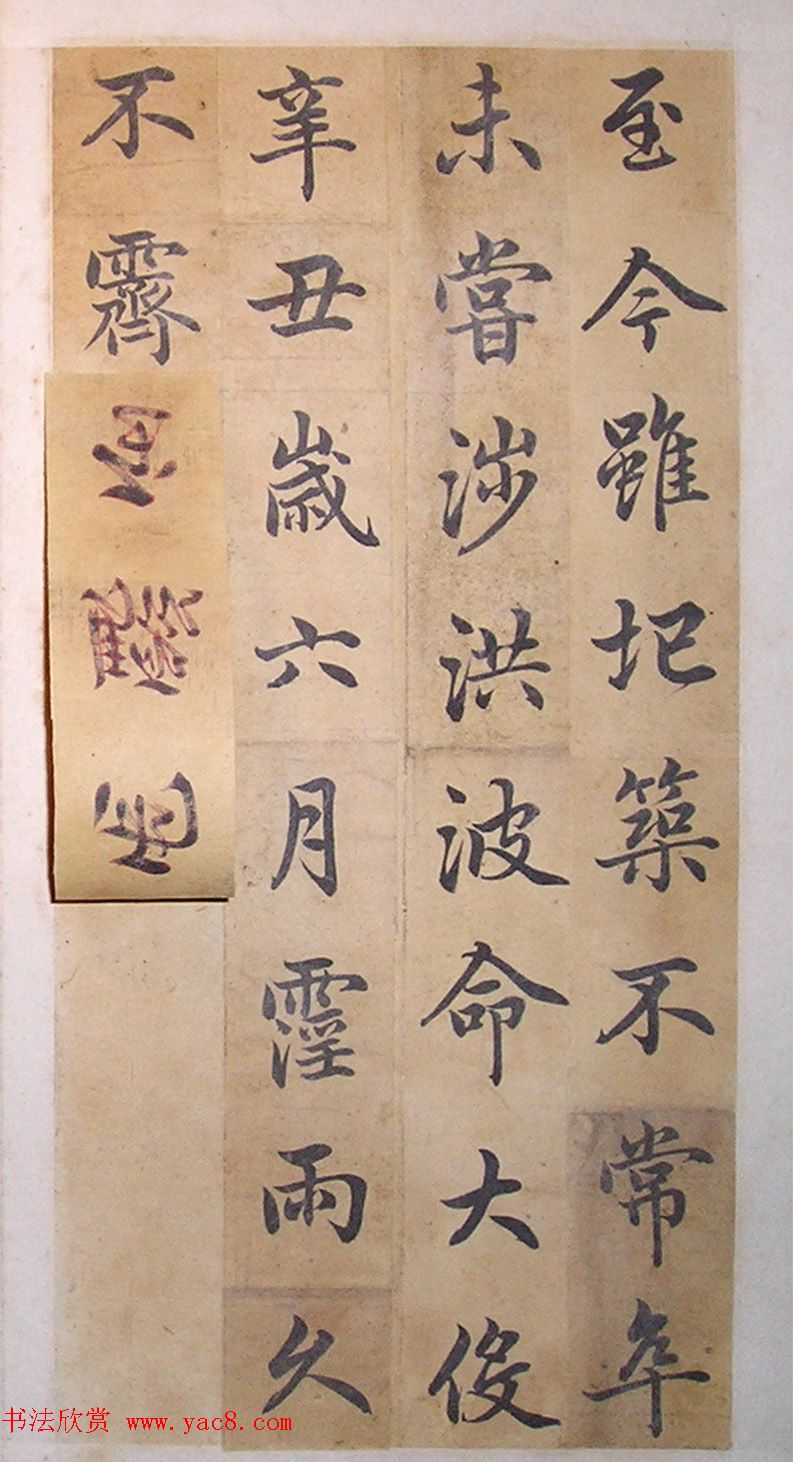 至今雖圯築不常年
未嘗涉洪波命大
辛丑歲六月霪雨久
不霽
书法欣赏 www.yac8.com